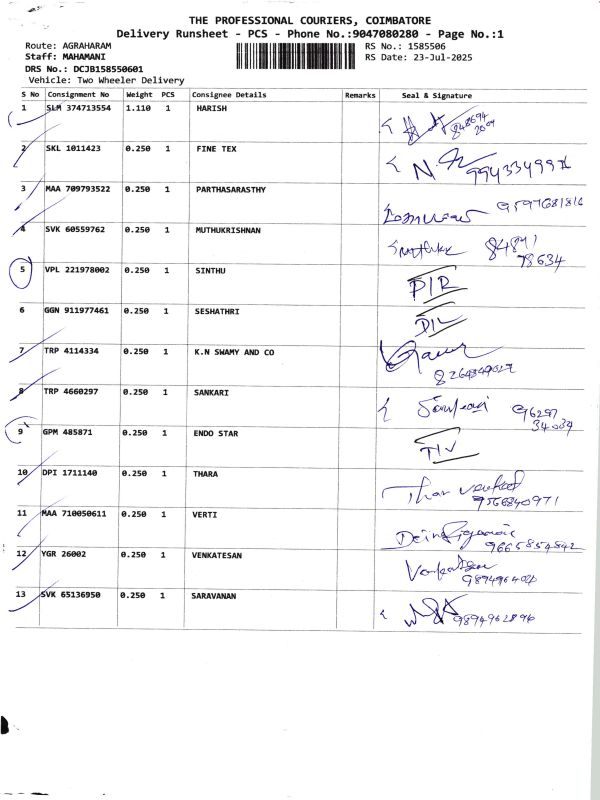 THE PROFESSIONAL COURIERS, COIMBATORE
Delivery Runsheet - PCS - Phone No.:9047080280 - Page No.:1
Route: AGRAHARAM
Staff: MAHAMANI
DRS No.: DCJB158550601
Vehicle: Two Wheeler Delivery
RS No.: 1585506
RS Date: 23-Jul-2025
S No Consignment No Weight PCS Consignee Details Remarks Seal & Signature
1 SLM 374713554 1.110 1 HARISH
2 SKL 1011423 0.250 1 FINE TEX
3 MAA 709793522 0.250 1 PARTHASARASTHY 9597681816
4 SVK 60559762 0.250 1 MUTHUKRISHNAN 84841 78634
5 VPL 221978002 0.250 1 SINTHU
6 GGN 911977461 0.250 1 SESHATHRI
7 TRP 4114334 0.250 1 K.N SWAMY AND CO
8 TRP 4660297 0.250 1 SANKARI
9 GPM 485871 0.250 1 ENDO STAR
10 DPI 1711140 0.250 1 THARA 9566840971
11 MAA 710050611 0.250 1 VERTI 9665854842
12 YGR 26002 0.250 1 VENKATESAN
13 SVK 65136950 0.250 1 SARAVANAN 9894962896